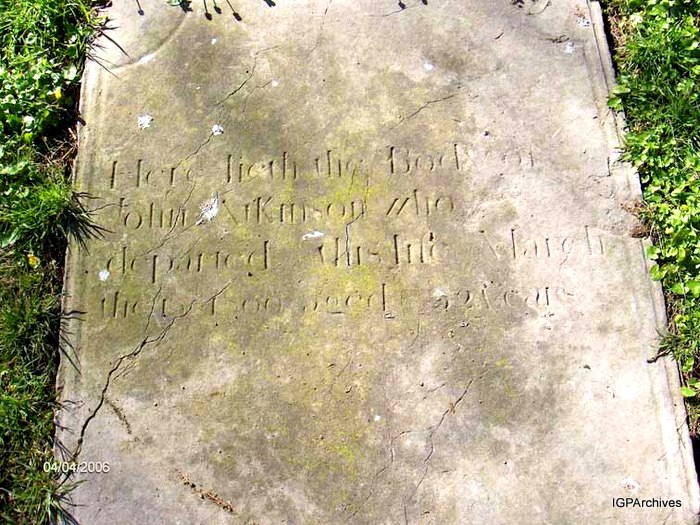 Here lieth the Body of
John Atkinson who
departed this life March
the aged 52 Years
04/04/2006
IGPArchives